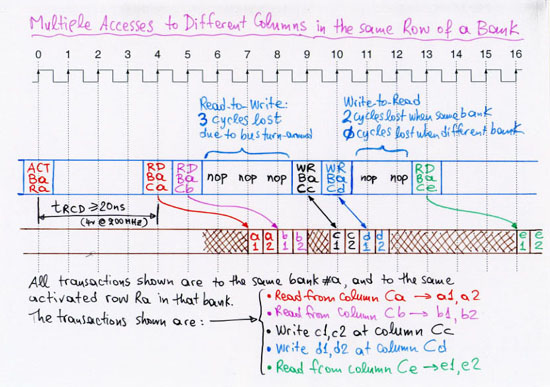 Multiple Accesses to Different Columns in the same Row of a Bank
0 1 2 3 4 5 6 7 8 9 10 11 12 13 14 15 16
Read-to-Write:
3 cycles lost
due to bus turn-around
Write-to-Read
2 cycles lost when same bank
0 cycles lost when different bank
ACT Ba Ra
RD Ba Ca
RD Ba Cb
nop nop nop
WR Ba Cc
WR Ba Cd
nop nop
RD Ba Ce
tRCD ≥ 20ns
(4~ @ 200MHz)
a1 a2 b1 b2 c1 c2 d1 d2 e1 e2
All transactions shown are to the same bank #a, and to the same
activated row Ra in that bank.
The transactions shown are:
• Read from column Ca → a1, a2
• Read from column Cb → b1, b2
• Write c1, c2 at column Cc
• Write d1, d2 at column Cd
• Read from column Ce → e1, e2